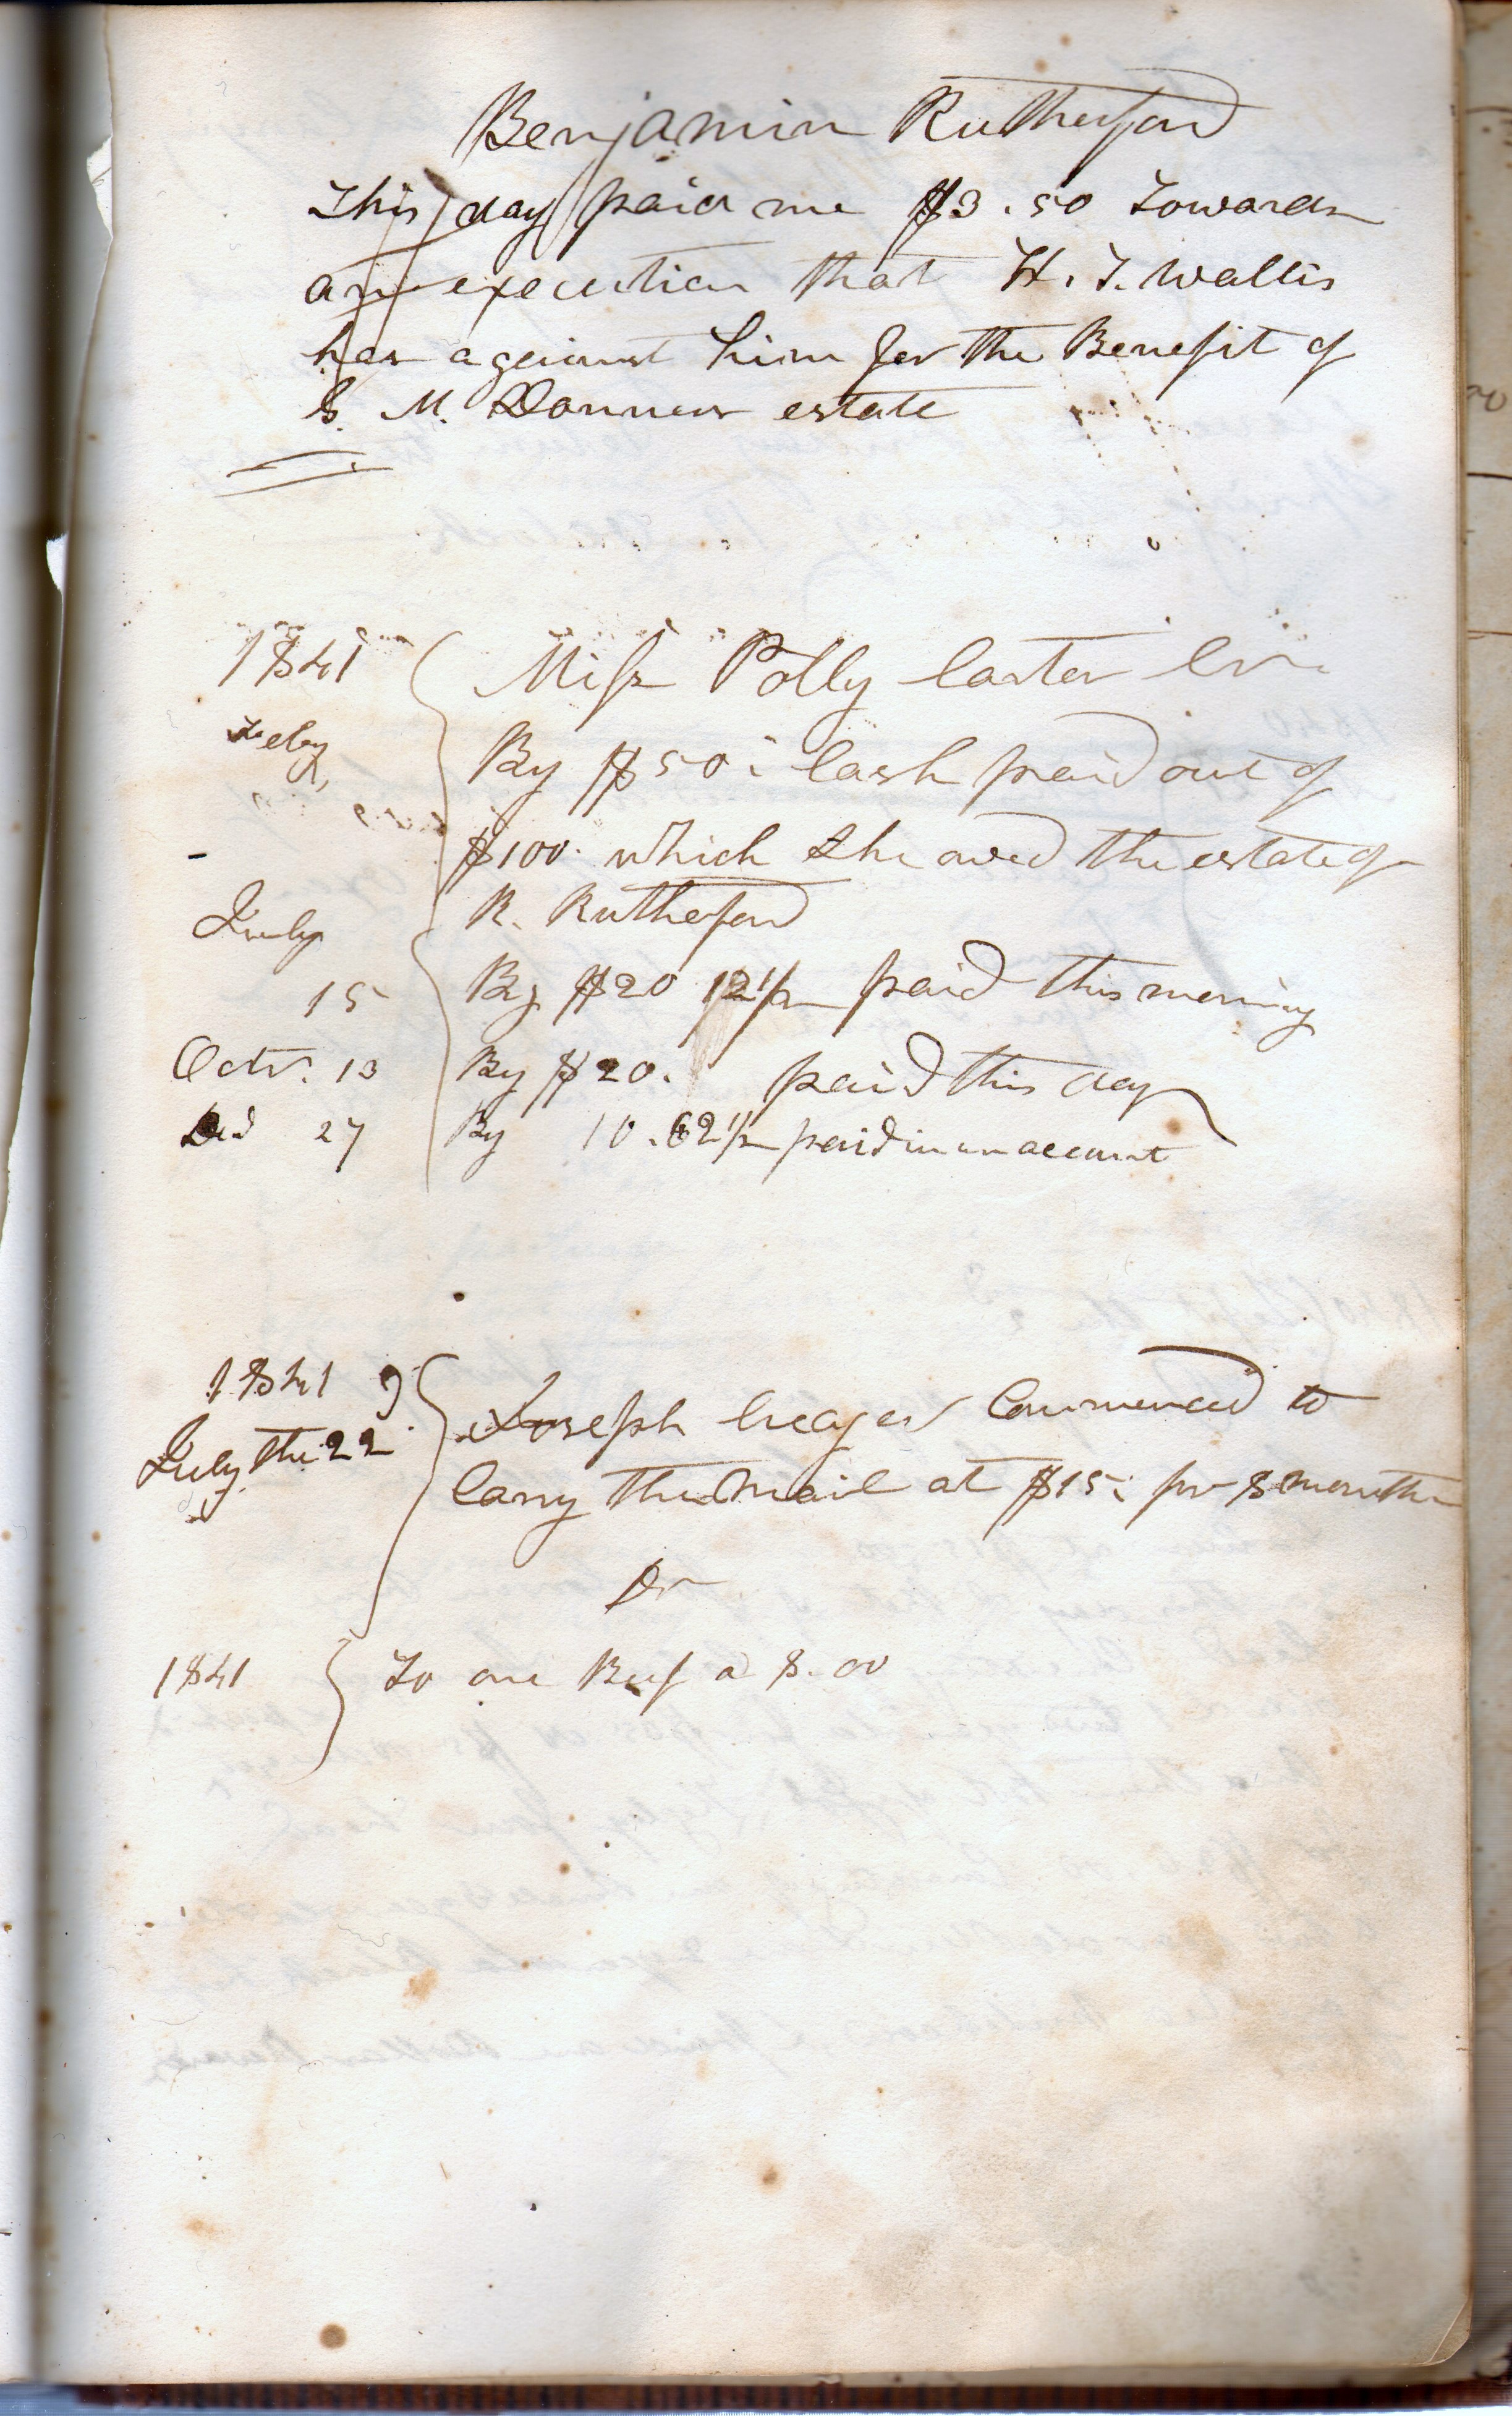 Benjamin Rutherford
This day paid me $3.50 Towards
an execution that H. T. Wallis
has against him for the Benefit of
S. M. estate
1841
Miss Polly Carter Cr
Feby
By $50: Cash paid out of
$100. which she owed the estate of
R. Rutherford
July
15 By $20 12 1/2 paid this morning
Octr. 13 By $20. paid this day
27 By 10.62 1/2 paid in an account
1841
July the 22
Joseph Creager Commenced to
Carry the Mail at $15: pr month
Dr
1841 To one Beef a 8.00